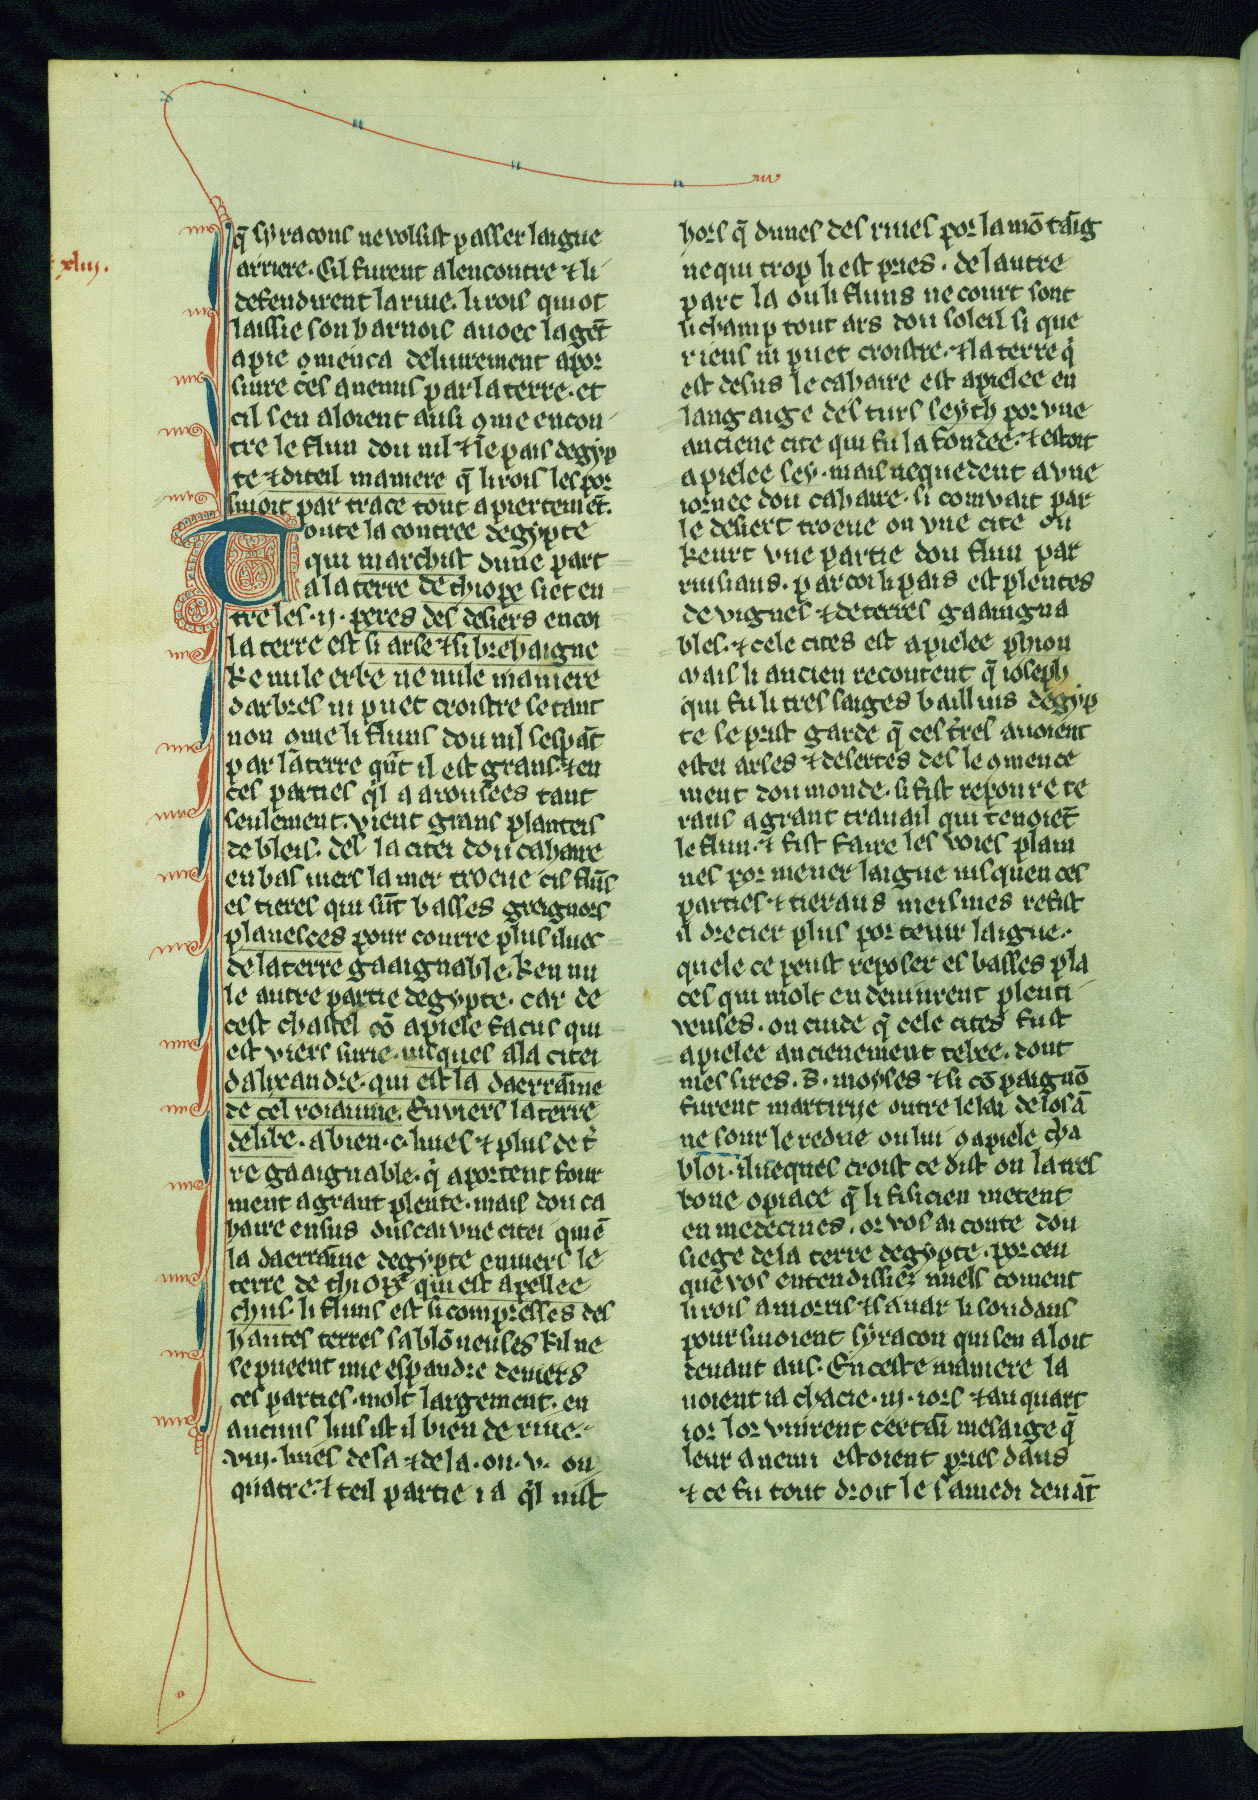 xliij.
q̄ syracons ne volsist passer laigue
arriere. Cil furent alencontre ⁊ li
defendirent la riue. li rois qui ot
laissie son harnois auoec la gēt
a pie ꝯmenca deliurement a por
siure ces anemis par la terre. et
cil sen aloient ausi ꝯme encon
tre le flun dou nil ⁊ le pais degyp
te ⁊ diteil maniere q̄ li rois les por
siuoit par trace tout apiertemēt.
Toute la contree degypte
qui marchist dune part
a la terre de thiope siet en
tre les .ij. peres des desiers encoi
la terre est si arse ⁊ si brehaigne
ke nule erbe ne nule maniere
darbres ni puet croistre se tant
non ꝯme li fluns dou nil sespāt
par la terre qūt il est grans. ⁊ en
ces parties q̄l a arousees tant
seulement. vient grans plenteis
de bleis. des la citei dou cahaire
en bas viers la mer troeue cis flūs
es tieres qui sūt basses greignors
planesces pour courre plus iluec
de la terre gaaignable. ke en nu
le autre partie degypte. car de
cest chastel cō apiele facus qui
est viers surie. iusques a la citei
dalixandre. qui est la daerraīne
de cel roiaume. Enviers la terre
delibe. a bien .c. liues ⁊ plus de t̄
re gaaignable. q̄ aportent four
ment a grant plente. mais dou ca
haire ensus dusca vne citei qui ē
la daerraīne degypte enuiers le
terre de thiope qui est apellee
chus. li fluns est si compresses des
hautes terres sablōneuses kil ne
se pueent mie espandre deuiers
ces parties. molt largement. en
aucuns lius ist il bien de riue.
.viij. liues desa ⁊ de la. ou .v. ou
quatre. ⁊ teil partie i a q̄l nist
hors q̄ dunes des riues por la mōtaīg
ne qui trop li est pries. de lautre
part la ou li fluns ne court sont
li champ tout ars dou soleil si que
riens ni puet croistre. ⁊ la terre q̄
est desus le cahaire est apielee en
langaige des turs seyth por vne
anciene cite qui fu la fondee. ⁊ estoit
apielee sey. mais nequedent a vne
iornee dou cahaire. si com vait par
le desiert troeue on vne cite ou
keurt vne partie dou flun par
ruisians. par coi li pais est plentes
de vignes ⁊ de terres gaaigna
bles. ⁊ cele cites est apielee phion
mais li ancien recontent q̄ ioseph
qui fu li tres saiges baillius degyp
te se prist garde q̄ ces t̄res auoient
estei arses ⁊ desertes des le ꝯmence
ment dou monde. si fist repoure te
raus a grant trauail qui tenoiēt
le flun. ⁊ fist faire les voies plain
nes por mener laigue iusquen ces
parties. ⁊ tieraus meismes refist
il drecier plus por tenir laigue.
quele ce peust reposer es basses pla
ces qui molt en deuinrent plenti
veuses. on cuide q̄ cele cites fust
apielee ancienement tebee. dont
mes sires .s. moyses ⁊ li cō paignō
furent martirije outre le lai de losā
ne sour le rosne ou lui ꝯ apiele cha
bloi. iluequnes croist ce dist on la tres
bone opiace q̄ li fisicien metent
en medecines. or vos ai conte dou
siege de la terre degypte. por ceu
que vos entendissiez miels coment
li rois amorris ⁊ sauar li soudans
poursiuoient syracon qui sen aloit
deuant aus. En ceste maniere la
uoient ia chacie .iij. iors. ⁊ au quart
ior lor vinrent certāi mesaige q̄
leur anemi estoient pries daus
⁊ ce fu tout droit le samedi deuāt